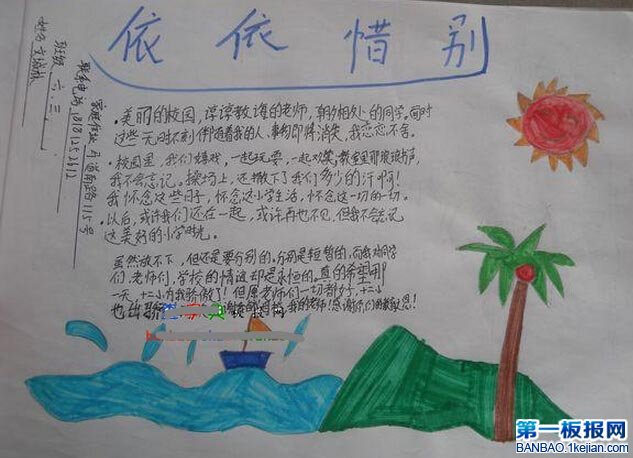 依依惜别
班级 六.三.
家庭住址 丹道南路115号
美丽的校园,谆谆教诲的老师,朝夕相处的同学,面对
这些无时不刻伴随着我的人、事物即将消失,我恋恋不舍。
校园里,我们嬉戏,一起玩耍,一起欢笑,教室里那琅琅书声,
我不会忘记。操场上,还撒下了我们多少的汗啊!
我怀念这些日子,怀念这小学生活,怀念这一切的一切。
以后,或许我们还在一起,或许再也不见,但我不会忘记
这美好的小学时光。
虽然放不下,但还是要分别的。分别是短暂的,而我对同学
们,老师们,学校的情谊却是永恒的。真的希望那
一天,十二小为我骄傲了!但愿老师们一切都好,十二小
也
第一板报网
BANBAO.1kejian.com